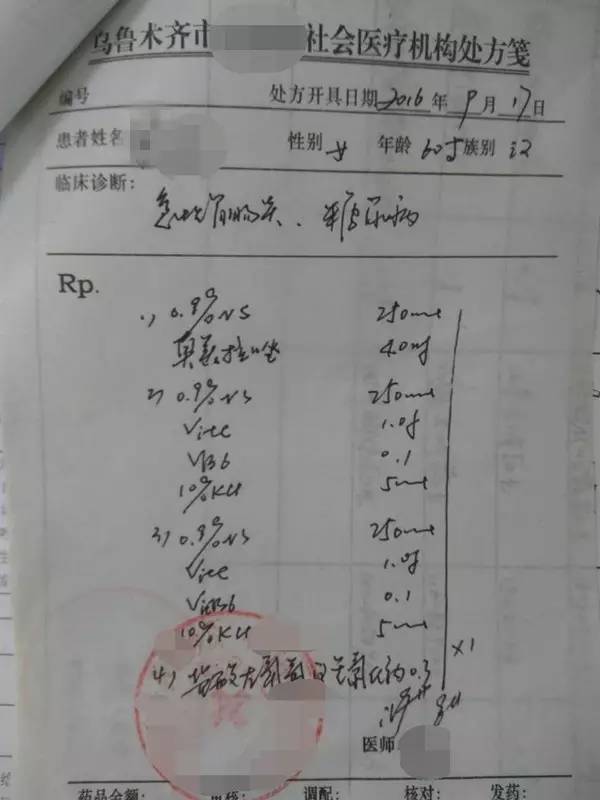 乌鲁木齐市 社会医疗机构处方笺
编号 处方开具日期 2016年 9月 17日
患者姓名 性别 女 年龄 60岁 族别 汉
临床诊断:
急性胃肠炎、糖尿病
Rp.
1) 0.9% NS 250ml
奥美拉唑 40mg
2) 0.9% NS 250ml
Vitc 1.0g
VB6 0.1
10% KCl 5ml
3) 0.9% NS 250ml
Vitc 1.0g
VitB6 0.1
10% KCl 5ml
4) 盐酸左氧氟 氯化钠 0.3
×1
医师
药品金额: 审核: 调配: 核对: 发药: